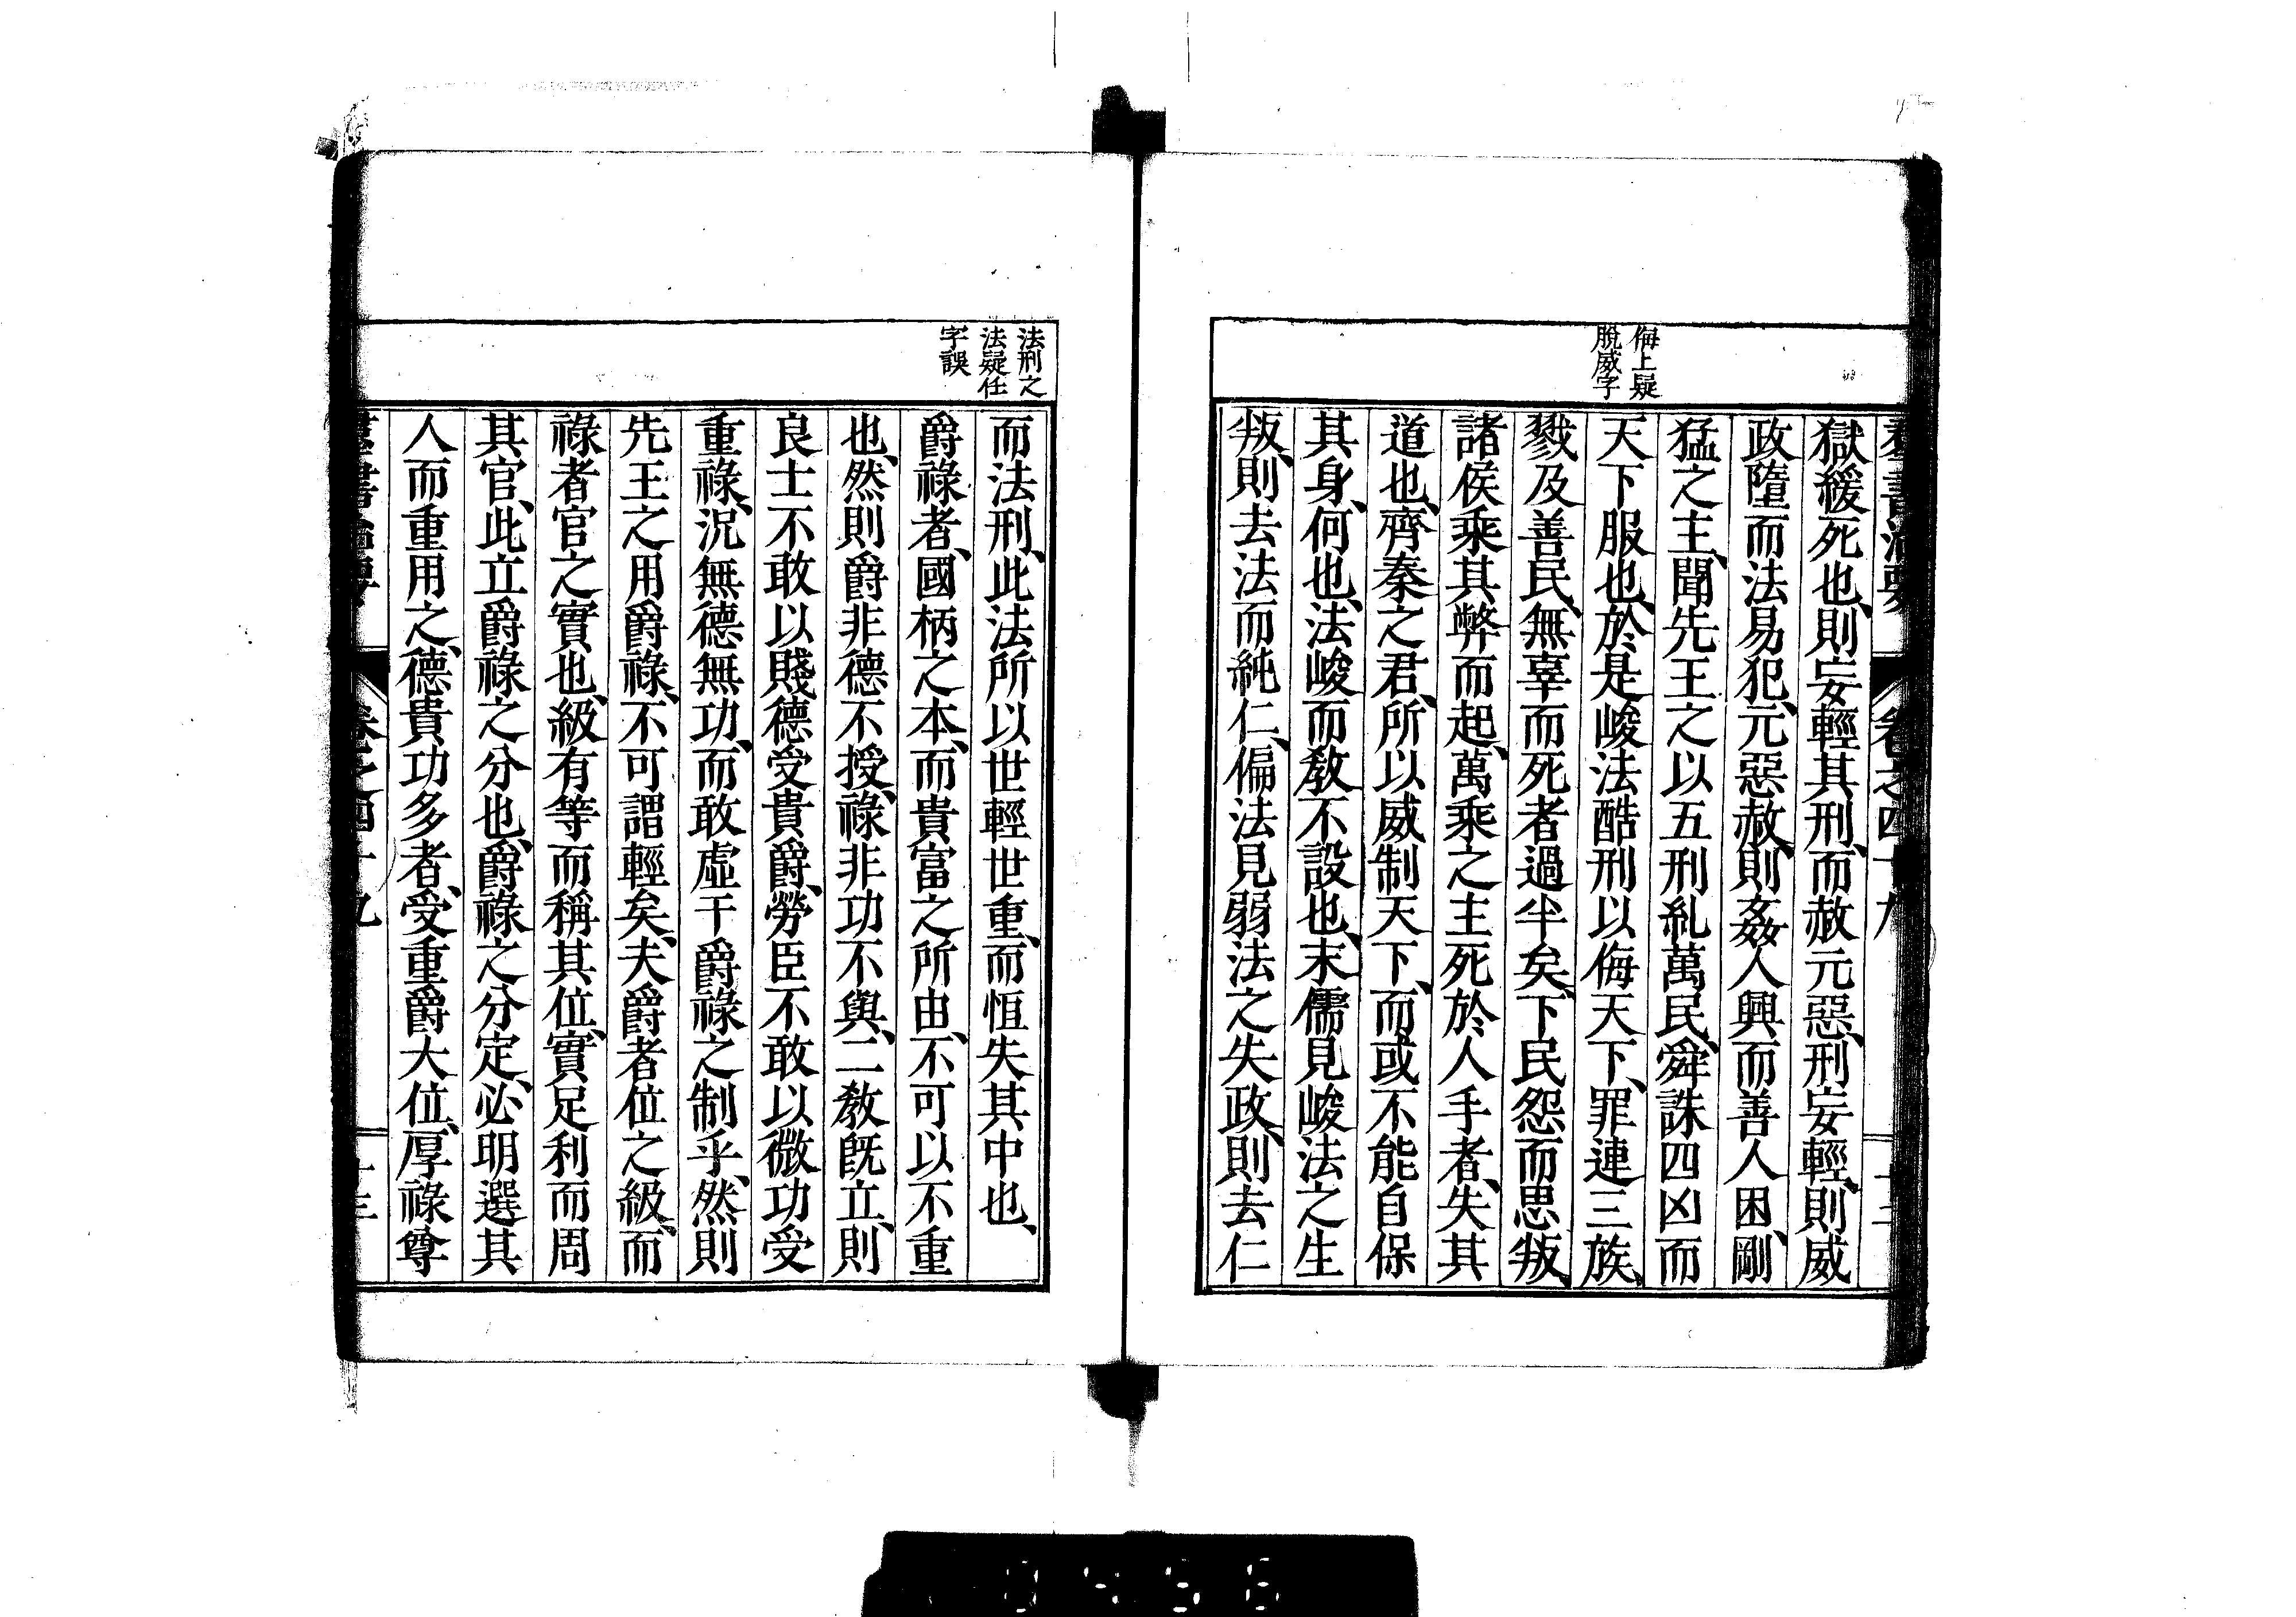 侮上疑
脫威字
獄緩死也、則妄輕其刑、而赦元惡、刑妄輕、則威
政墮而法易犯、元惡赦、則姦人興而善人困、剛
猛之主、聞先王之以五刑糺萬民、舜誅四凶而
天下服也、於是峻法酷刑以侮天下、罪連三族、
戮及善民、無辜而死者過半矣、下民怨而思叛、
諸侯乘其弊而起、萬乘之主死於人手者、失其
道也、齊秦之君、所以威制天下、而或不能自保
其身、何也、法峻而教不設也、末儒見峻法之生
叛、則去法而純仁、偏法見弱法之失政、則去仁
法刑之
法疑任
字誤
而法刑、此法所以世輕世重、而恒失其中也、
爵祿者、國柄之本、而貴富之所由、不可以不重
也、然則爵非德不授、祿非功不與、二教既立、則
良士不敢以賤德受貴爵、勞臣不敢以微功受
重祿、況無德無功、而敢虛干爵祿之制乎、然則
先王之用爵祿、不可謂輕矣、夫爵者位之級、而
祿者官之實也、級有等而稱其位、實足利而周
其官、此立爵祿之分也、爵祿之分定、必明選其
人而重用之、德貴功多者、受重爵大位、厚祿尊